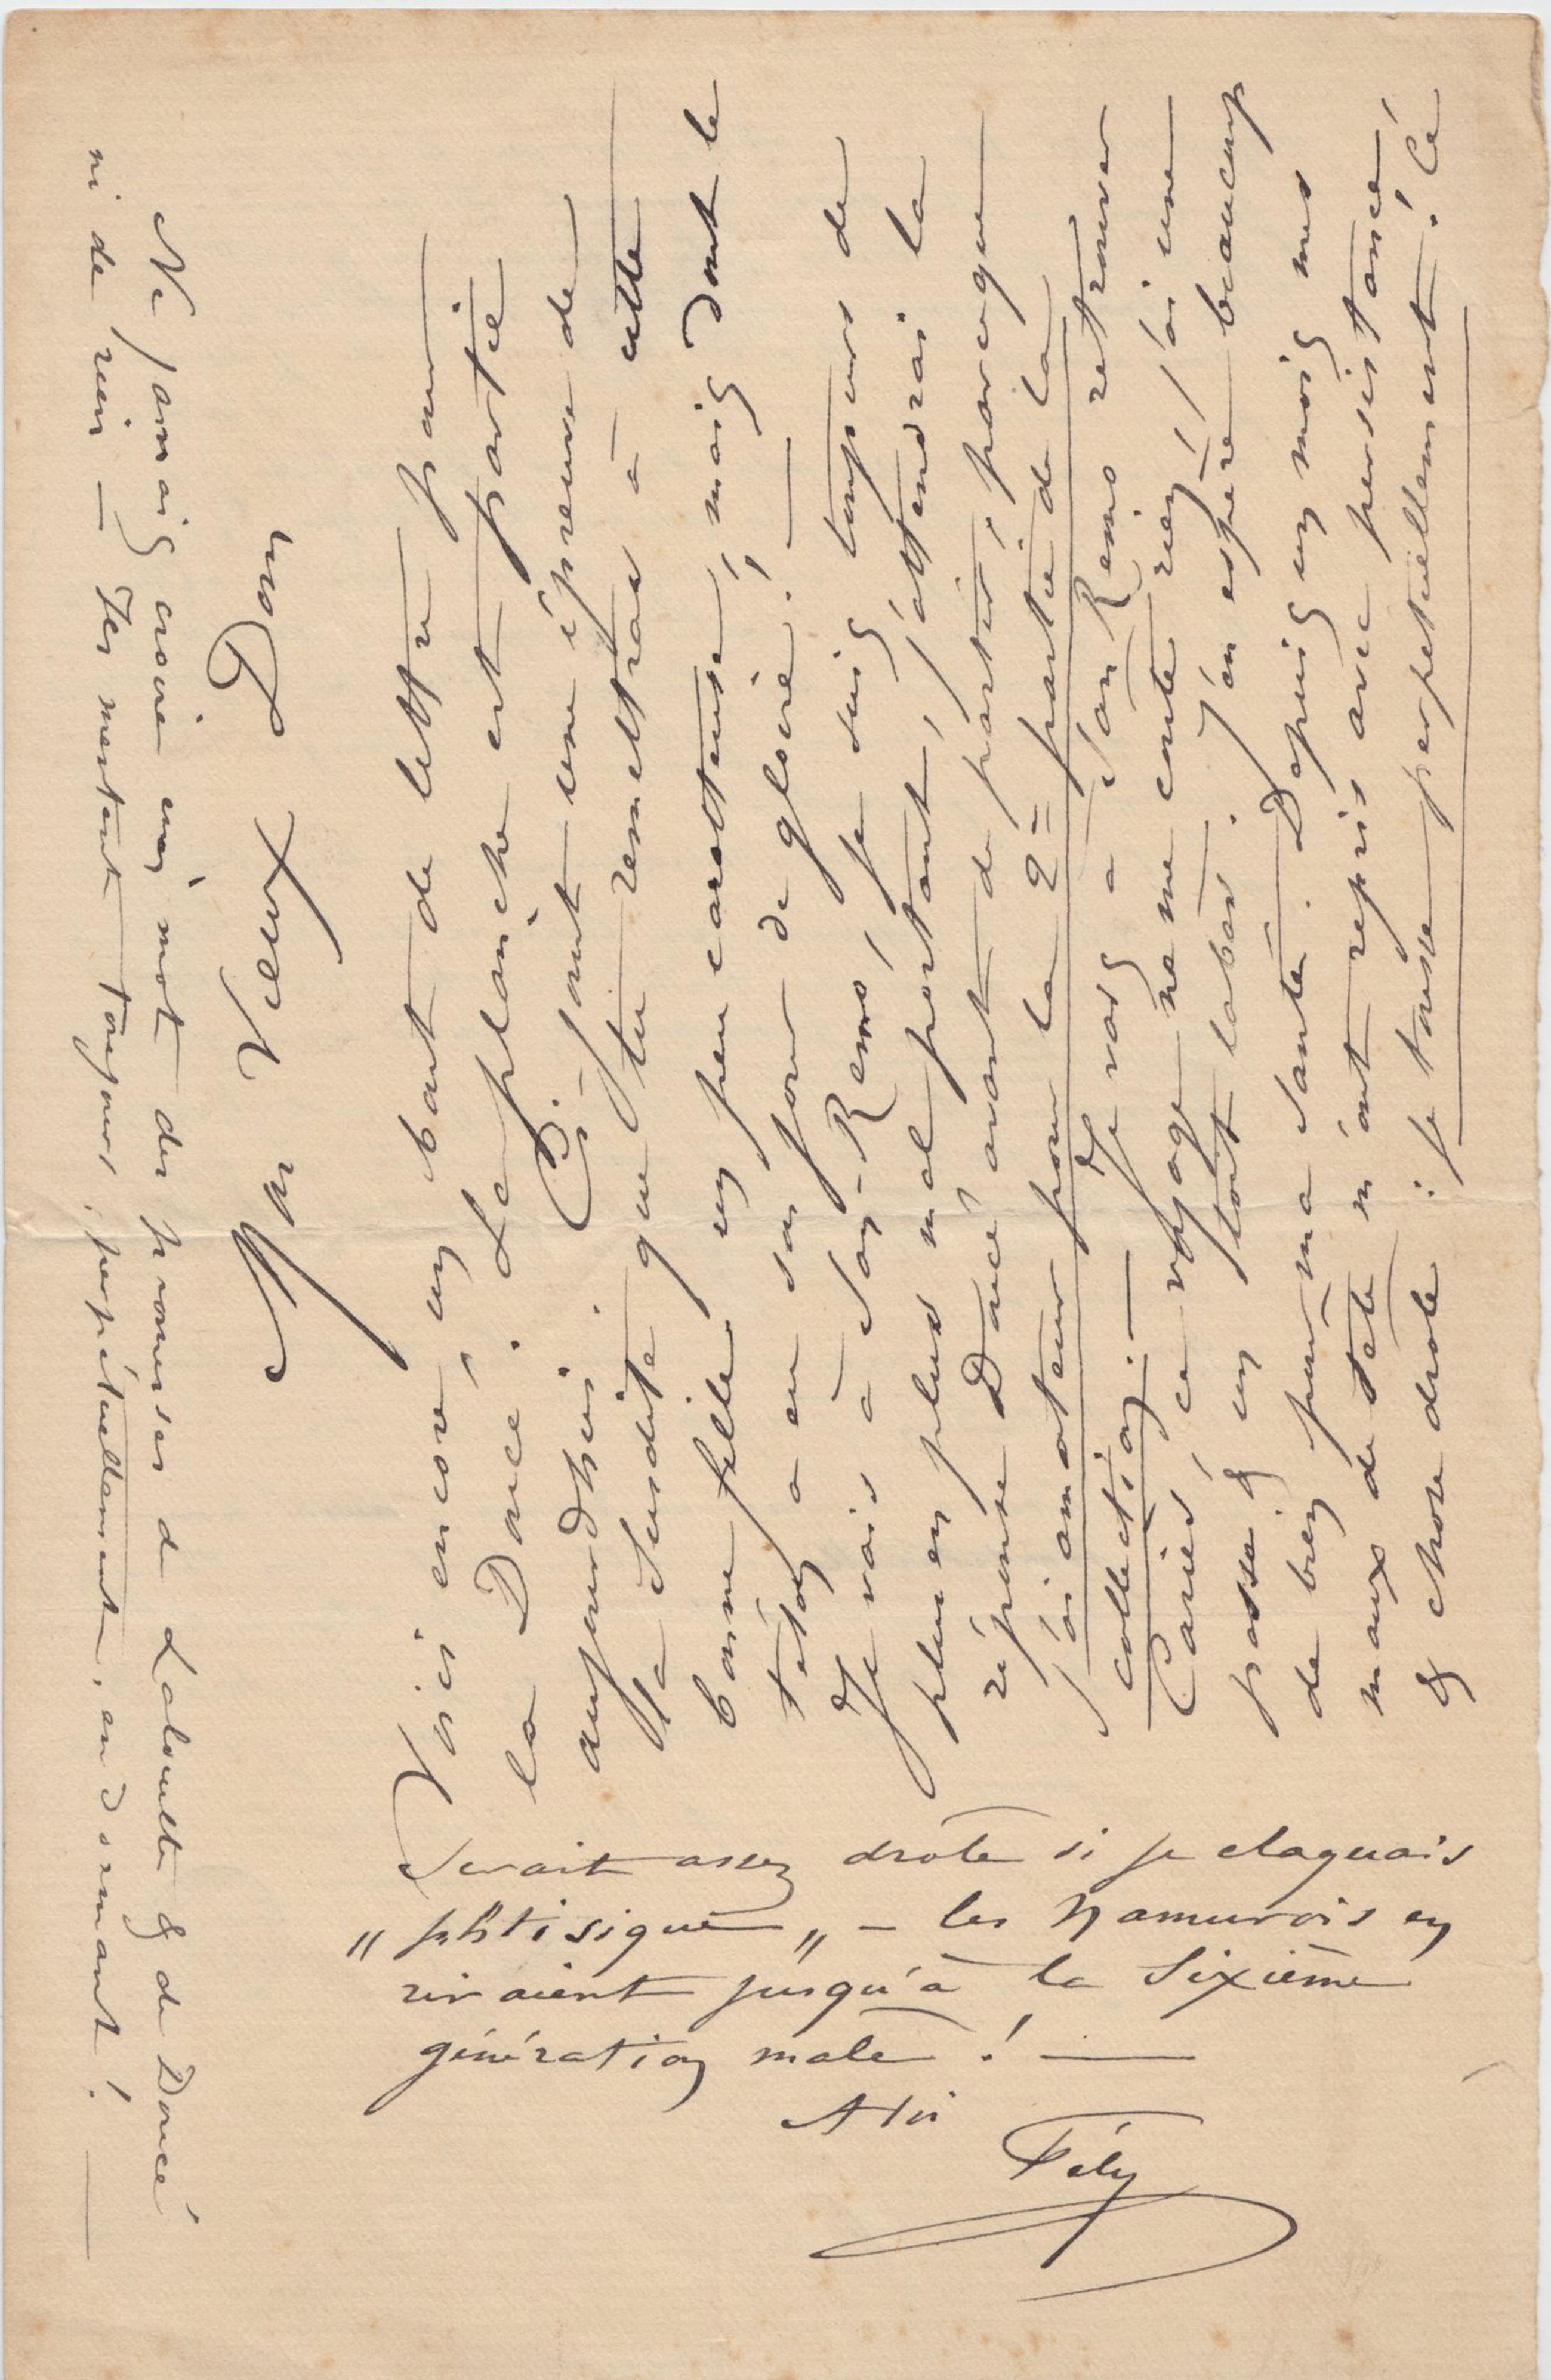 Mon Vieux
Voici encore, un bout de lettre pour
la Doucé. La planche est partie
aujourdhui. Ci-joint une épreuve de
la susdite que tu remettras à cette
bonne fille un peu carotteuse, mais dont le
téton a eu son jour de gloire! —
Je vais à San-Remo, je suis toujours de
plus en plus mal portant, j'attendrai la
réponse Doucé avant de partir, parceque
j'ai amateur pour la 2e partie de la
collection. — Je vas à San Remo retrouver
Cariès, ce voyage ne me coute rien, j'ai une
passe & un toit labas. J'en espère beaucoup
de bien pour ma santé. Depuis un mois mes
maux de tête m'ont repris avec persistance
& chose drole : je tousse perpetuellement. Ce
serait assez drôle si je claquais
„ phtisique „ — les Namurois en
riraient jusqu'à la sixième
génération mâle ! —
A toi
Fély
Ne jamais croire un mot des promesses de Lalouette & de Doucé
ni de rien — Ils mentent toujours, perpétuellement, en dormant ! —